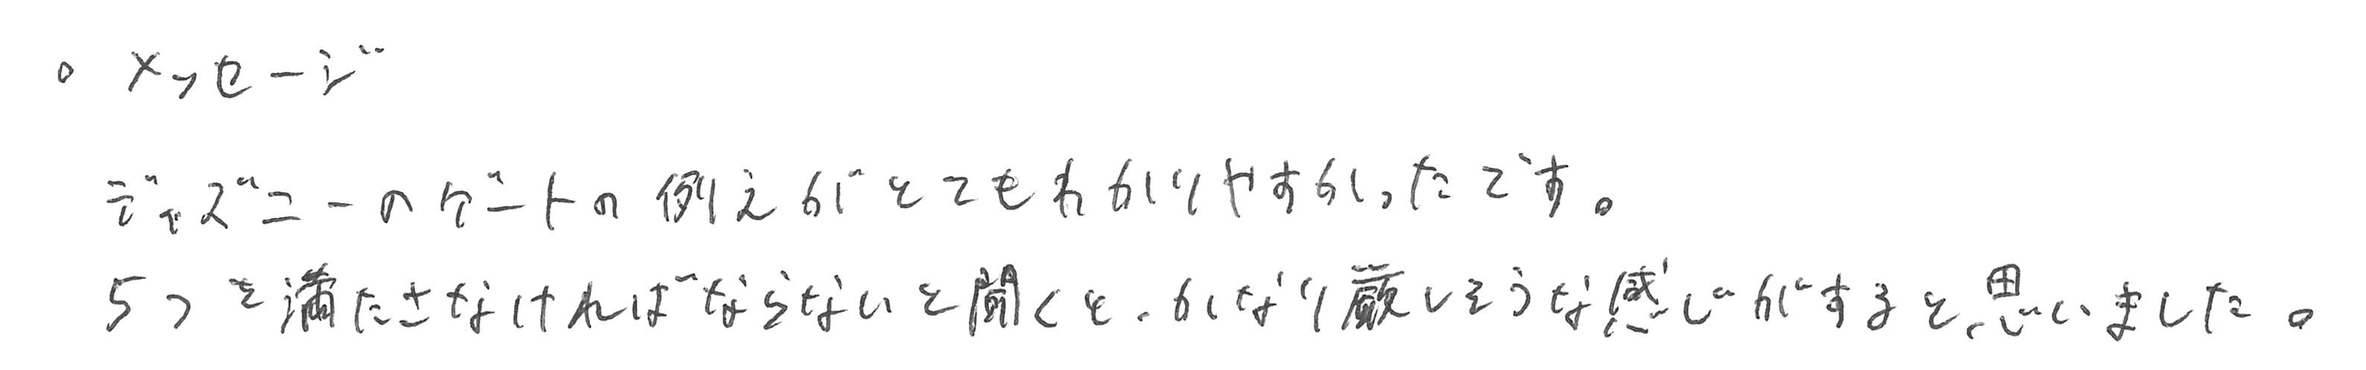 。メッセージ
ディズニーのゲートの例えがとてもわかりやすかったです。
5つを満たさなければならないと聞くと、かなり厳しそうな感じがすると思いました。